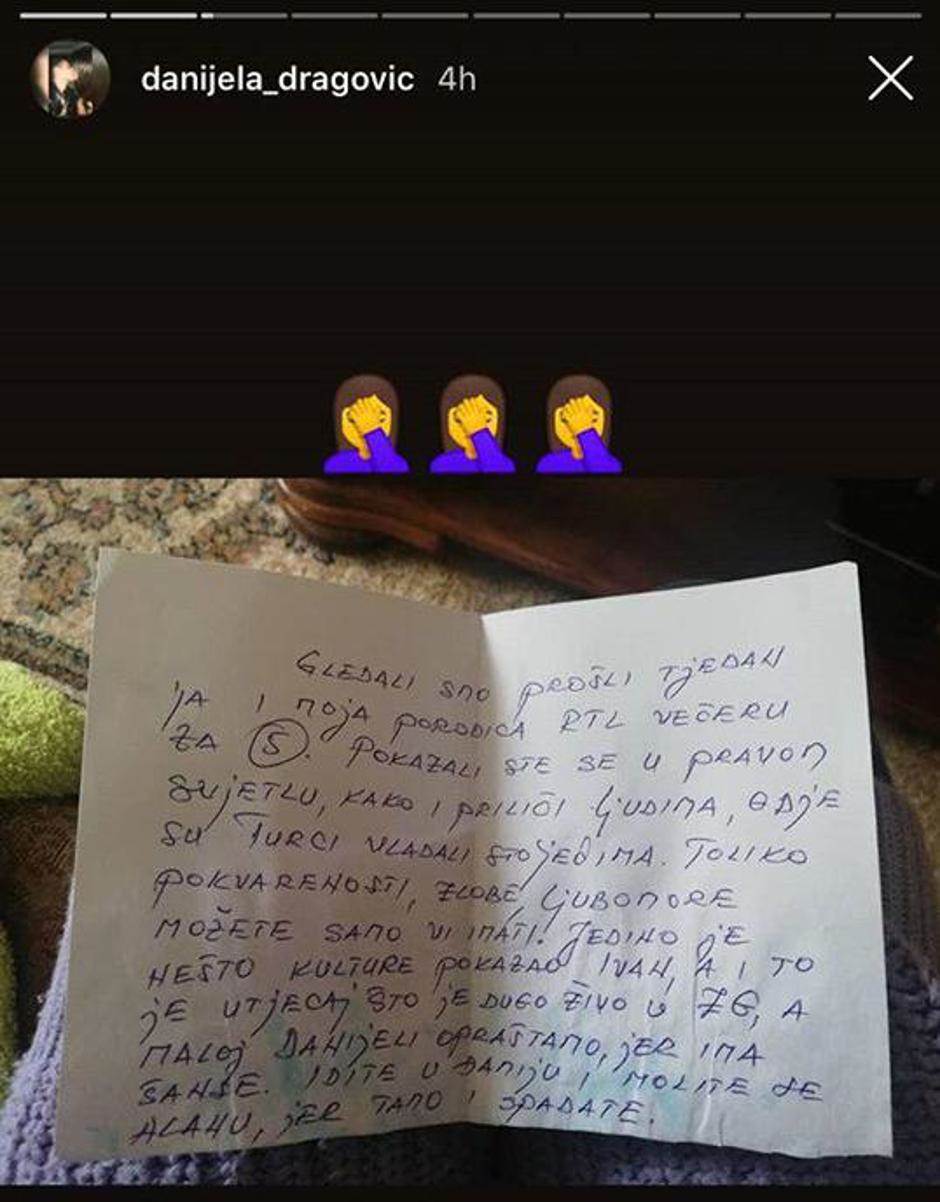 danijela_dragovic 4h
GLEDALI SMO PROŠLI TJEDAN
JA I MOJA PORODICA RTL VEČERU
ZA 5. POKAZALI STE SE U PRAVOM
SVJETLU, KAKO I PRILIČI LJUDIMA, GDJE
SU TURCI VLADALI STOLJEĆIMA. TOLIKO
POKVARENOSTI, ZLOBE, LJUBOMORE
MOŽETE SAMO VI IMATI! JEDINO JE
NEŠTO KULTURE POKAZAO IVAN, A I TO
JE UTJECAJ ŠTO JE DUGO ŽIVO U ZG, A
MALOJ DANIJELI OPRAŠTAMO, JER IMA
ŠANSE. IDITE U ĐAMIJU I MOLITE SE
ALAHU, JER TAMO I SPADATE.